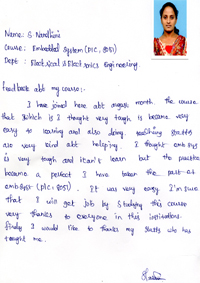 Name: S Nandhini
Course: Embedded System (PIC, 8051)
Dept : Electrical & Electronics Engineering.
Feed back abt my course:-
I have joined here abt august month. the course
that which is I thought very tough is became very
easy to learning and also doing. teaching staffs
are very kind abt helping. I thought emb sys
is very tough and it can't learn but the practice
became a perfect I have taken the part at
emb syst (pic, 8051). It was very easy. I'm sure
that I will get job by studying this course
very thanks to everyone in this institutions.
finally I would like to thanks my staffs who has
taught me.